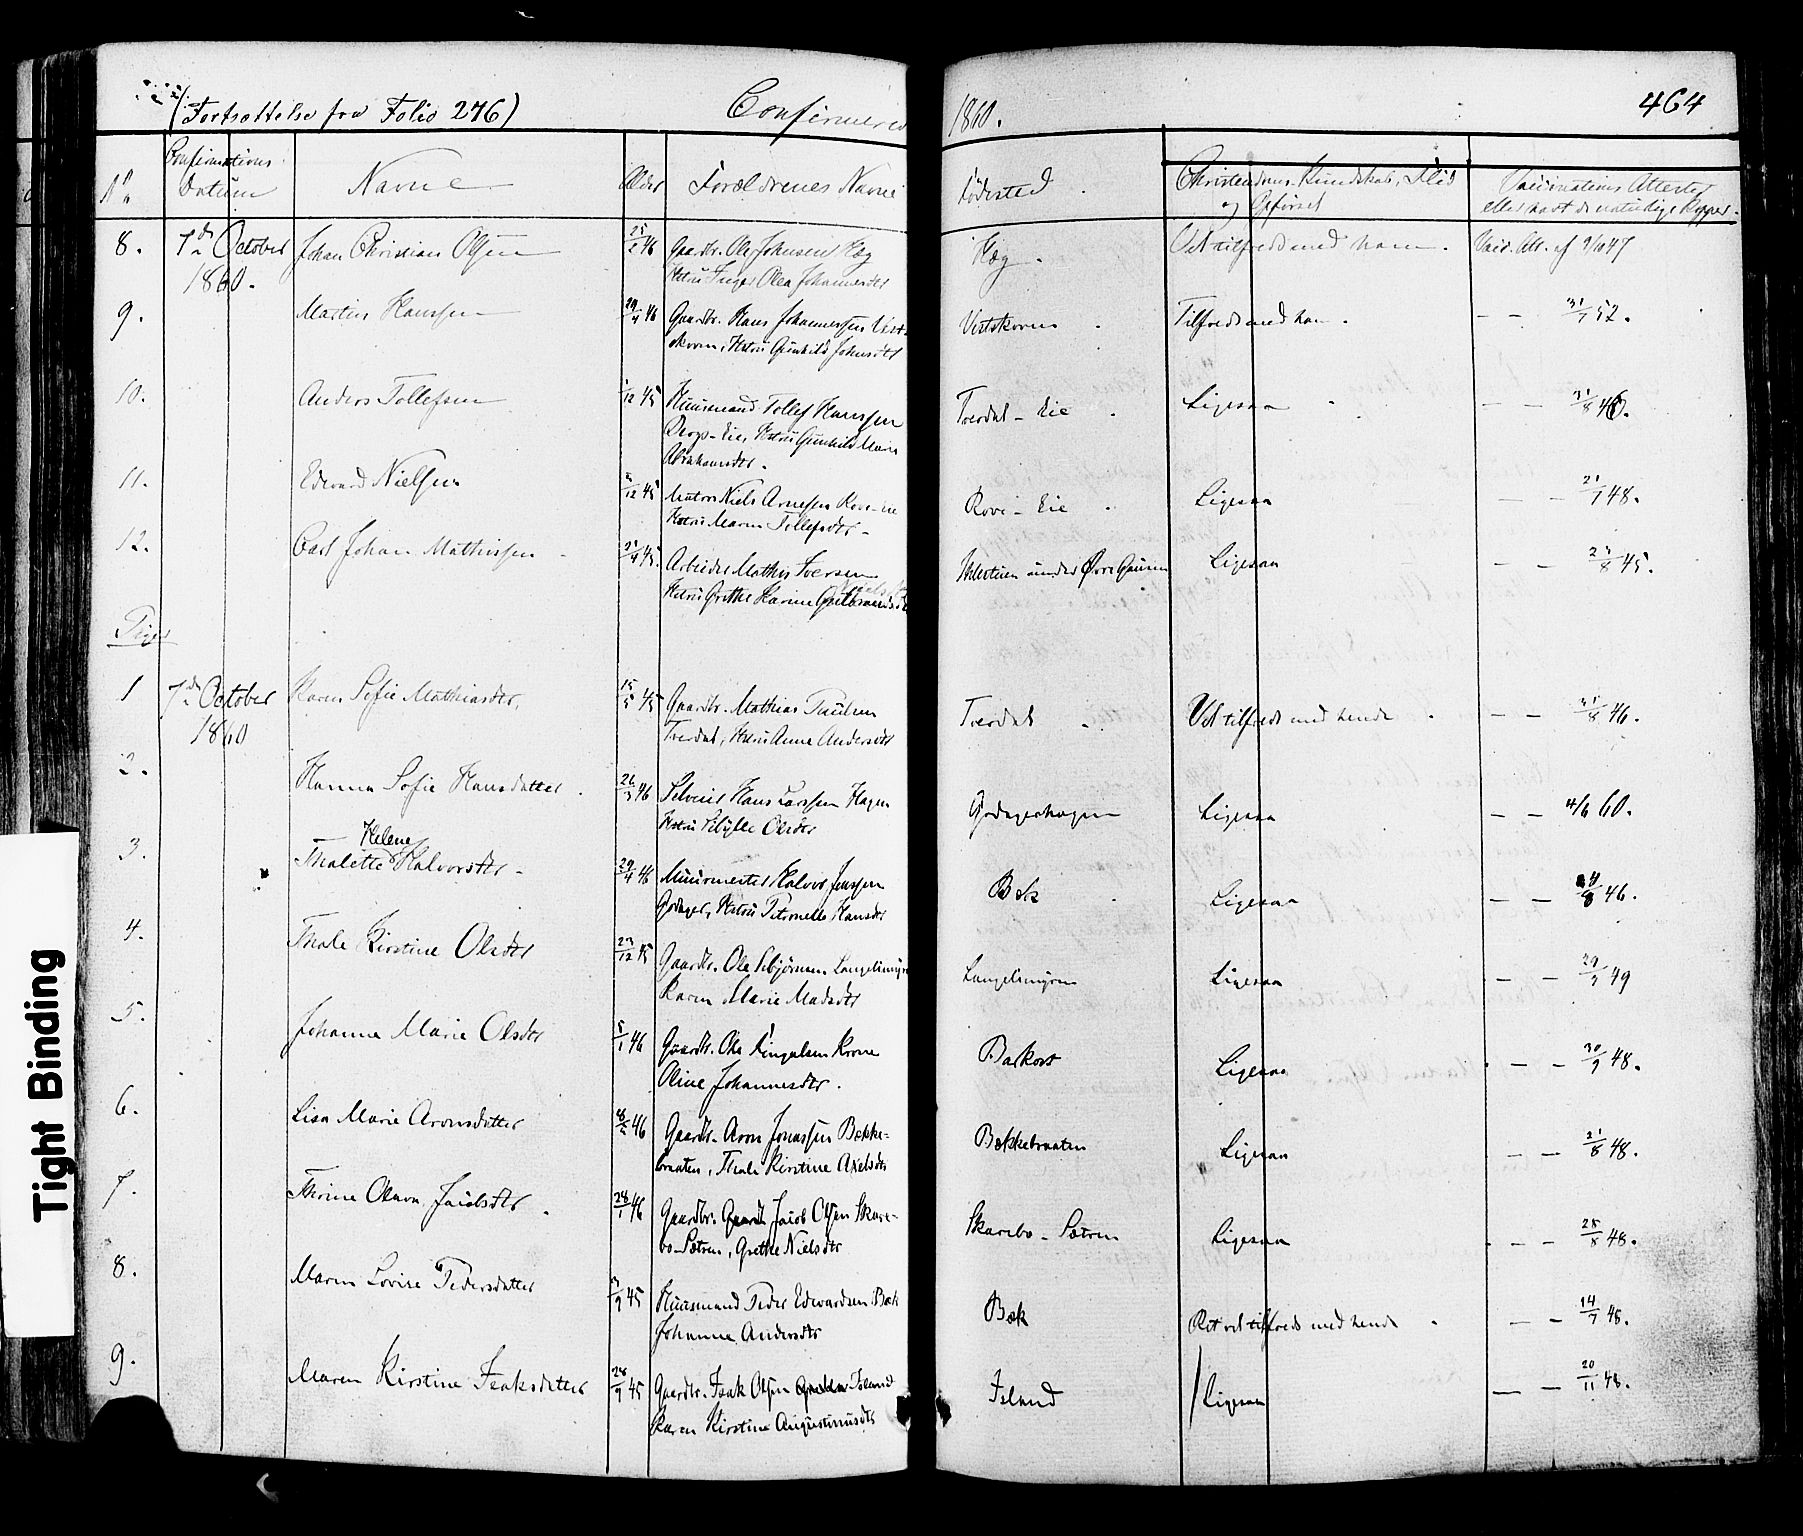 (Fortsættelse fra Folio 276) Confirmerede 1860. 464
No Confirmations Datum Navne Alder Forældrenes Navne Fødested Christendoms-Kundskab, Flid og Opførsel Vaccinations Attester eller havt de naturlige Kopper.
8. 7de October 1860. Johan Christian Olsen 46 Gaardbr. Ole Johnsen Hæg
Hustru Inger Olea Johannesdtr Hæg. Vel tilfreds med ham. Vacc. Att. af 47
9. Martin Hanssen 29/4 46 Gaardbr. Hans Johannessen Vest-
skoven, Hustru Gunhild Johnsdtr Vestskoven Tilfreds med ham. — — 31/7 52.
10. Anders Tollefsen 12 45 Huusmand Tollef Hanssen
Eie, Hustru Gunhild Marie
Abrahamsdtr. Tverdal-Eie Ligesaa — — 31/8 46.
11. Edvard Nielsen 12 45 Matros Niels Arnesen Rove-Eie
Hustru Maren Tollefsdtr. Rove-Eie Ligesaa — — 21/7 48.
12. Carl Johan Mathissen 45. Arbeider Mathis Iversen
Hustru Grethe Karine under Øvre Ligesaa — — 23/8 45.
Piger
1 7de October 1860 Karen Sofie Mathiasdtr, 15/5 45 Gaardbr. Mathias Paulsen
Tverdal, Hustru Anne Andersdtr Tverdal Vel tilfreds med hende. — — 31/8 46.
2. Hanna Sofie Hansdatter. 26/3 46 Selveier Hans Larssen Hagen
Hustru Sibylle Olsdtr Godagerhagen Ligesaa — — 4/6 60.
3. Helene
Thalette Halvorsdtr. 29/4 46 Muurmester Halvor Jenssen
Godager, Hustru Petronelle Hansdtr Bæk Ligesaa — — 8 46.
4. Thale Kirstine Olsdtr 23/12 45 Gaardbr. Ole Langelimyren
Karen Marie Madsdtr Langelimyren Ligesaa — — 29/9 49
5. Johanne Marie Olsdtr 5/1 46 Gaardbr. Ole Krone
Oline Johannesdtr. Barkost Ligesaa — — 30/9 48.
6. Lisa Marie Aronsdatter 46 Gaardbr. Aron Jonassen Bække-
braaten, Thale Kirstine Axelsdtr Bækkebraaten Ligesaa — — 21/8 48.
7. Thrine Olava Jacobsdtr. 28/1 46 Gaardbr. Jacob Olsen Skare-
bo-Sætren, Grethe Nielsdtr Skarebo-Sætren Ligesaa — — 28/8 48.
8. Maren Lovise Pedersdatter 9 45 Huusmand Peder Edvardsen Bæk
Johanne Andersdtr Bæk Ret vel tilfreds med hende — — 14/7 48.
9. Maren Kirstine Isaksdatter 28/9 45 Gaardbr. Isak Olsen Island
Karen Kirstine Augustinusdtr Island Ligesaa — — 20/11 48.
Tight Binding